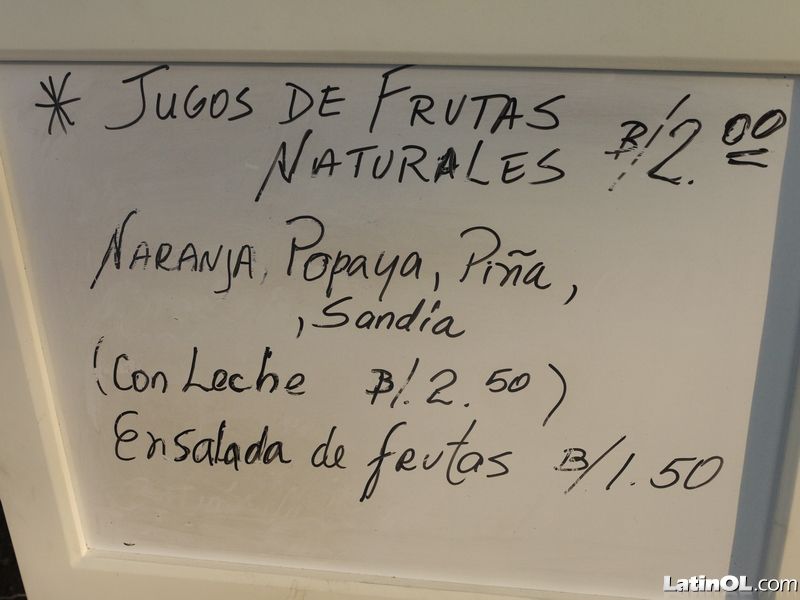 * JUGOS DE FRUTAS
NATURALES B/2.00
NARANJA, Popaya, Piña,
, Sandía
(Con Leche B/.2.50)
Ensalada de frutas B/1.50
LatinOL.com